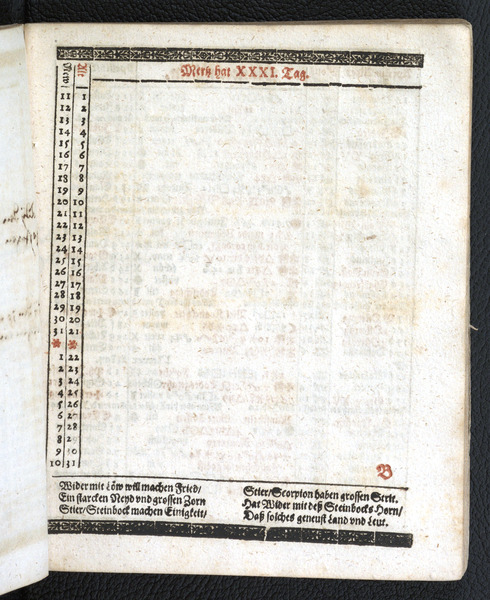 New Alt Mertz hat XXXI. Tag.
11 1
12 2
13 3
14 4
15 5
16 6
17 7
18 8
19 9
20 10
21 11
22 12
23 13
24 14
25 15
26 16
27 17
28 18
29 19
30 20
31 21
1 22
2 23
3 24
4 25
5 26
6 27
7 28
8 29
9 30
10 31
B
Wider mit Löw will machen Fried/
Ein starcken Neyd vnd grossen Zorn
Stier/Steinbock machen Einigkeit/
Stier/Scorpion haben grossen Strit.
Hat Wider mit deß Steinbocks Horn/
Daß solches geneust Land vnd Leut.